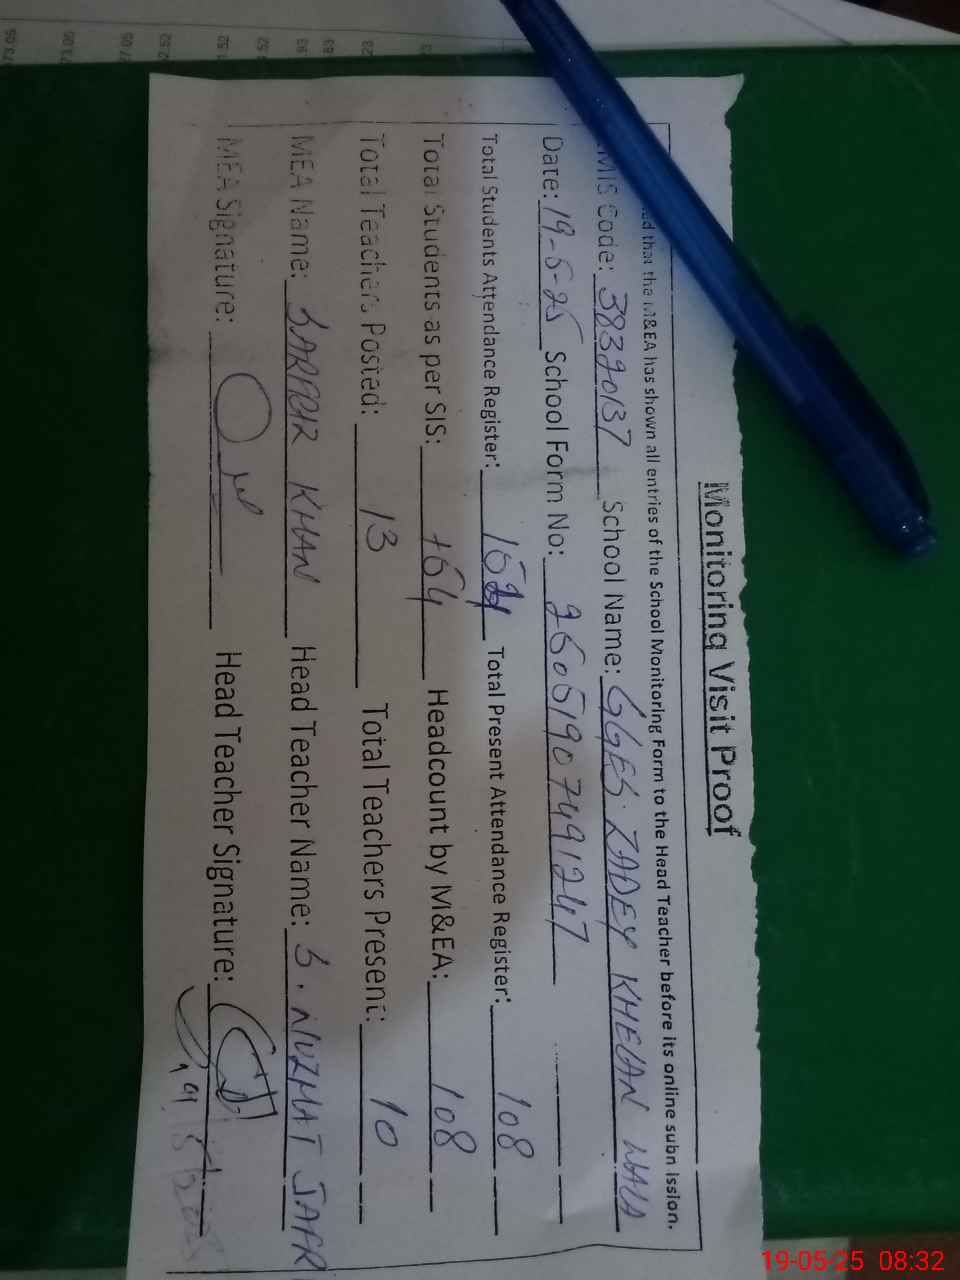 Monitoring Visit Proof
that the M&EA has shown all entries of the School Monitoring Form to the Head Teacher before its online subn ission.
MIS Code: 38320137 School Name: GGES ZADEY KHELAN WALA
Date: 19-5-25 School Form No: 25051907491247
Total Students Attendance Register: Total Present Attendance Register: 108
Total Students as per SIS: 164 Headcount by M&EA: 108
Total Teachers Posted: 13 Total Teachers Present: 10
MEA Name: KHAN Head Teacher Name: S. NUZHAT JAFRI
MEA Signature: Head Teacher Signature:
19-05-25 08:32